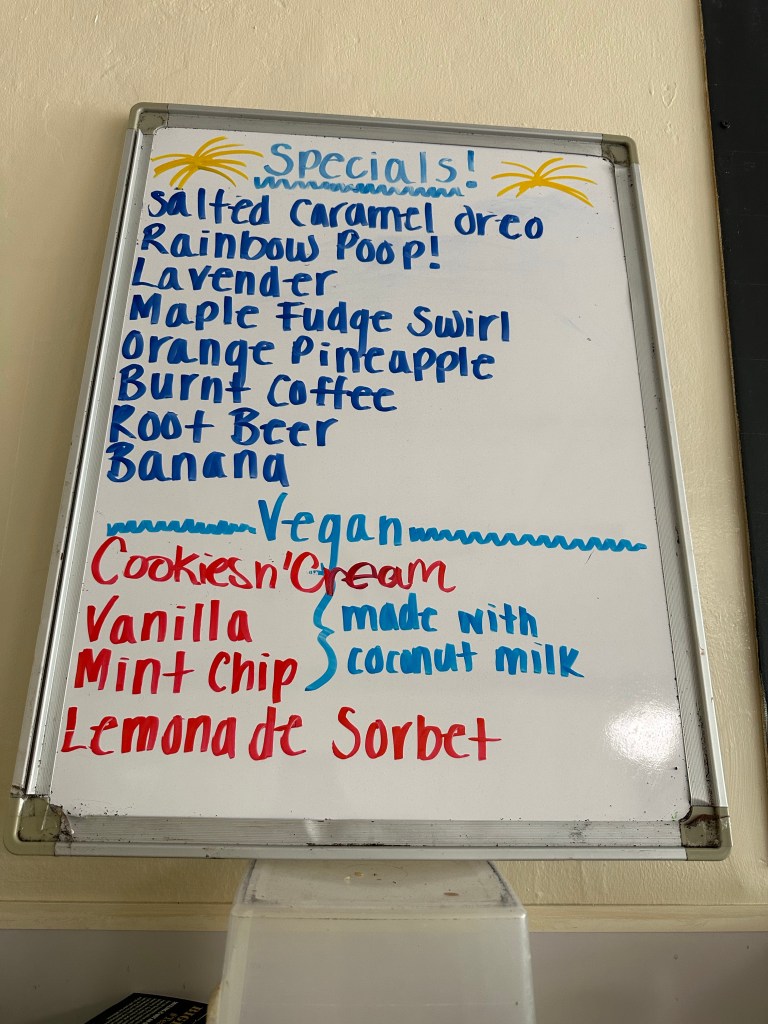 Specials!
Salted Caramel Oreo
Rainbow Poop!
Lavender
Maple Fudge Swirl
Orange Pineapple
Burnt Coffee
Root Beer
Banana
Vegan
Cookiesn'Cream
Vanilla
Mint Chip
made with
coconut milk
Lemonade Sorbet